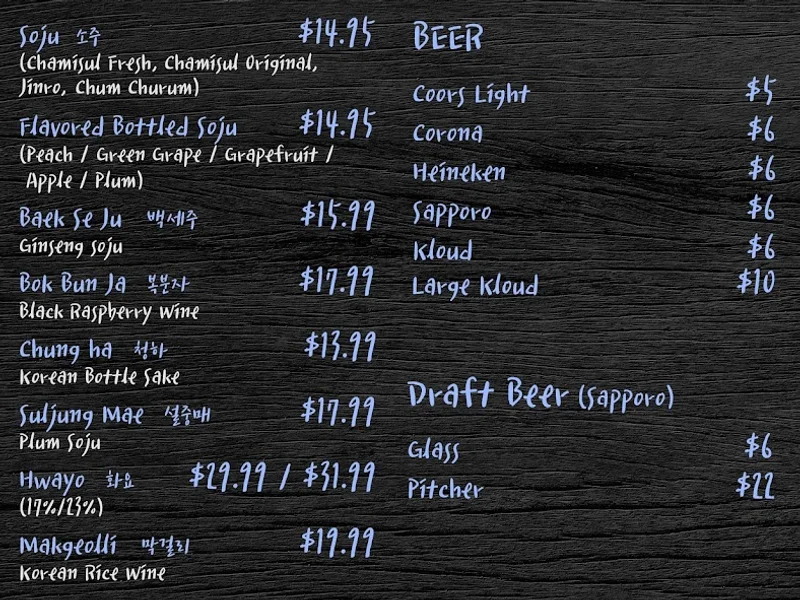 Soju 소주 $14.95
(Chamisul Fresh, Chamisul Original,
Jinro, Chum Churum)
Flavored Bottled Soju $14.95
(Peach / Green Grape / Grapefruit /
Apple / Plum)
Baek Se Ju 백세주 $15.99
Ginseng Soju
Bok Bun Ja 복분자 $17.99
Black Raspberry Wine
Chung ha 청하 $13.99
Korean Bottle Sake
Suljung Mae 설중매 $17.99
Plum Soju
Hwayo 화요 $29.99 / $31.99
(17%/23%)
Makgeolli 막걸리 $19.99
Korean Rice Wine
BEER
Coors Light $5
Corona $6
Heineken $6
Sapporo $6
Kloud $6
Large Kloud $10
Draft Beer (Sapporo)
Glass $6
Pitcher $22